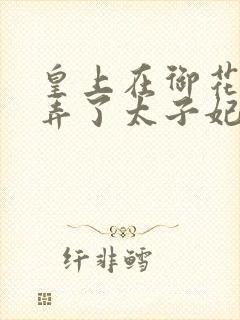 皇上在御花
弄了太子妃
纤非鳕